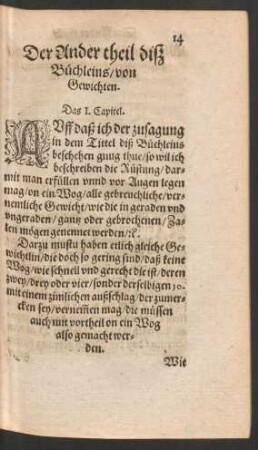 14
Der Ander theil diß
Büchleins/von
Gewichten.
Das I. Capitel.
AUff daß ich der zusagung
in dem Tittel diß Büchleins
beschehen gnug thue/so wil ich
beschreiben die Rüstung/dar-
mit man erfüllen vnnd vor Augen legen
mag/on ein Wog/alle gebreuchliche/ver-
nemliche Gewicht/wie die in geraden vnd
vngeraden/gantz oder gebrochenen/Za-
len mögen genennet werden/ꝛc.
Darzu mustu haben etlich gleiche Ge-
wichtlin/die doch so gering sind/daß keine
Wog/wie schnell vnd gerecht die ist/deren
zwey/drey oder vier/sonder derselbigen 10.
mit einem zimlichen außschlag/der zumer-
cken sey/vernem̃en mag/die müssen
auch mit vortheil on ein Wog
also gemacht wer-
den.
Wie